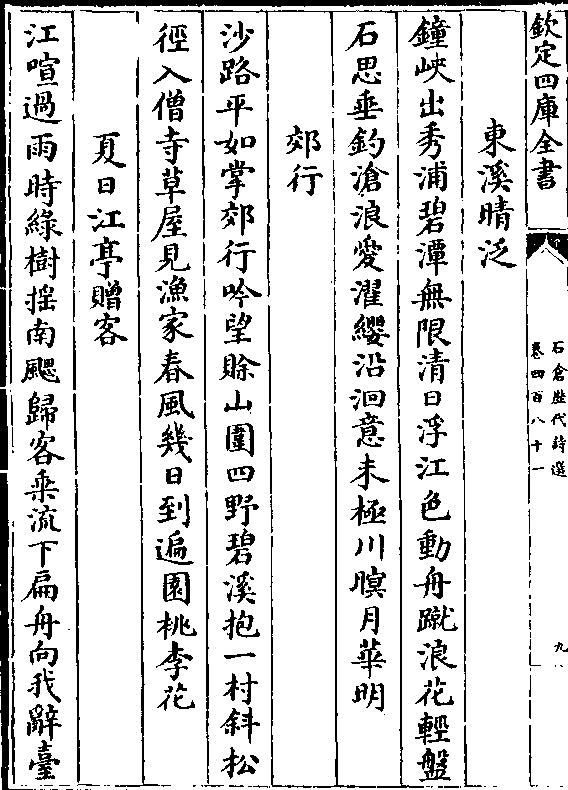 欽定四庫全書
石倉歴代詩選
卷四百八十一
九
東溪晴泛
鐘峽出秀浦碧潭無限清日浮江色動舟蹴浪花輕盤
石思垂釣滄浪愛濯纓沿洄意未極川暝月華明
郊行
沙路平如掌郊行吟望賒山圍四野碧溪抱一村斜松
徑入僧寺草屋見漁家春風幾日到遍園桃李花
夏日江亭贈客
江喧過雨時綠樹揺南颸歸客乘流下扁舟向我辭臺